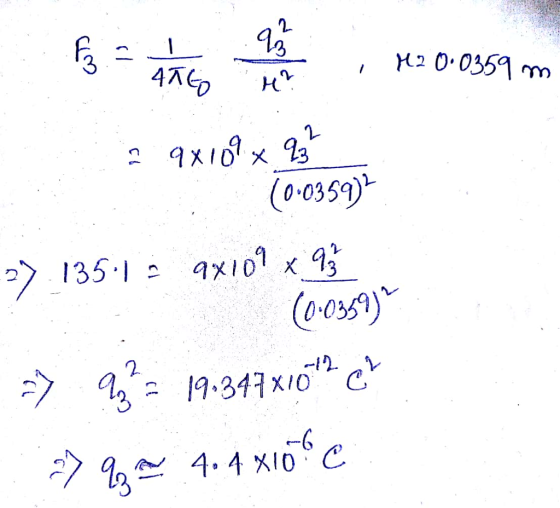 F₃ = 1/4πϵ₀ q₃²/r² , r = 0.0359 m
= 9×10⁹ × q₃²/(0.0359)²
=> 135.1 = 9×10⁹ × q₃²/(0.0359)²
=> q₃² = 19.347×10⁻¹² C²
=> q₃ ≃ 4.4×10⁻⁶ C